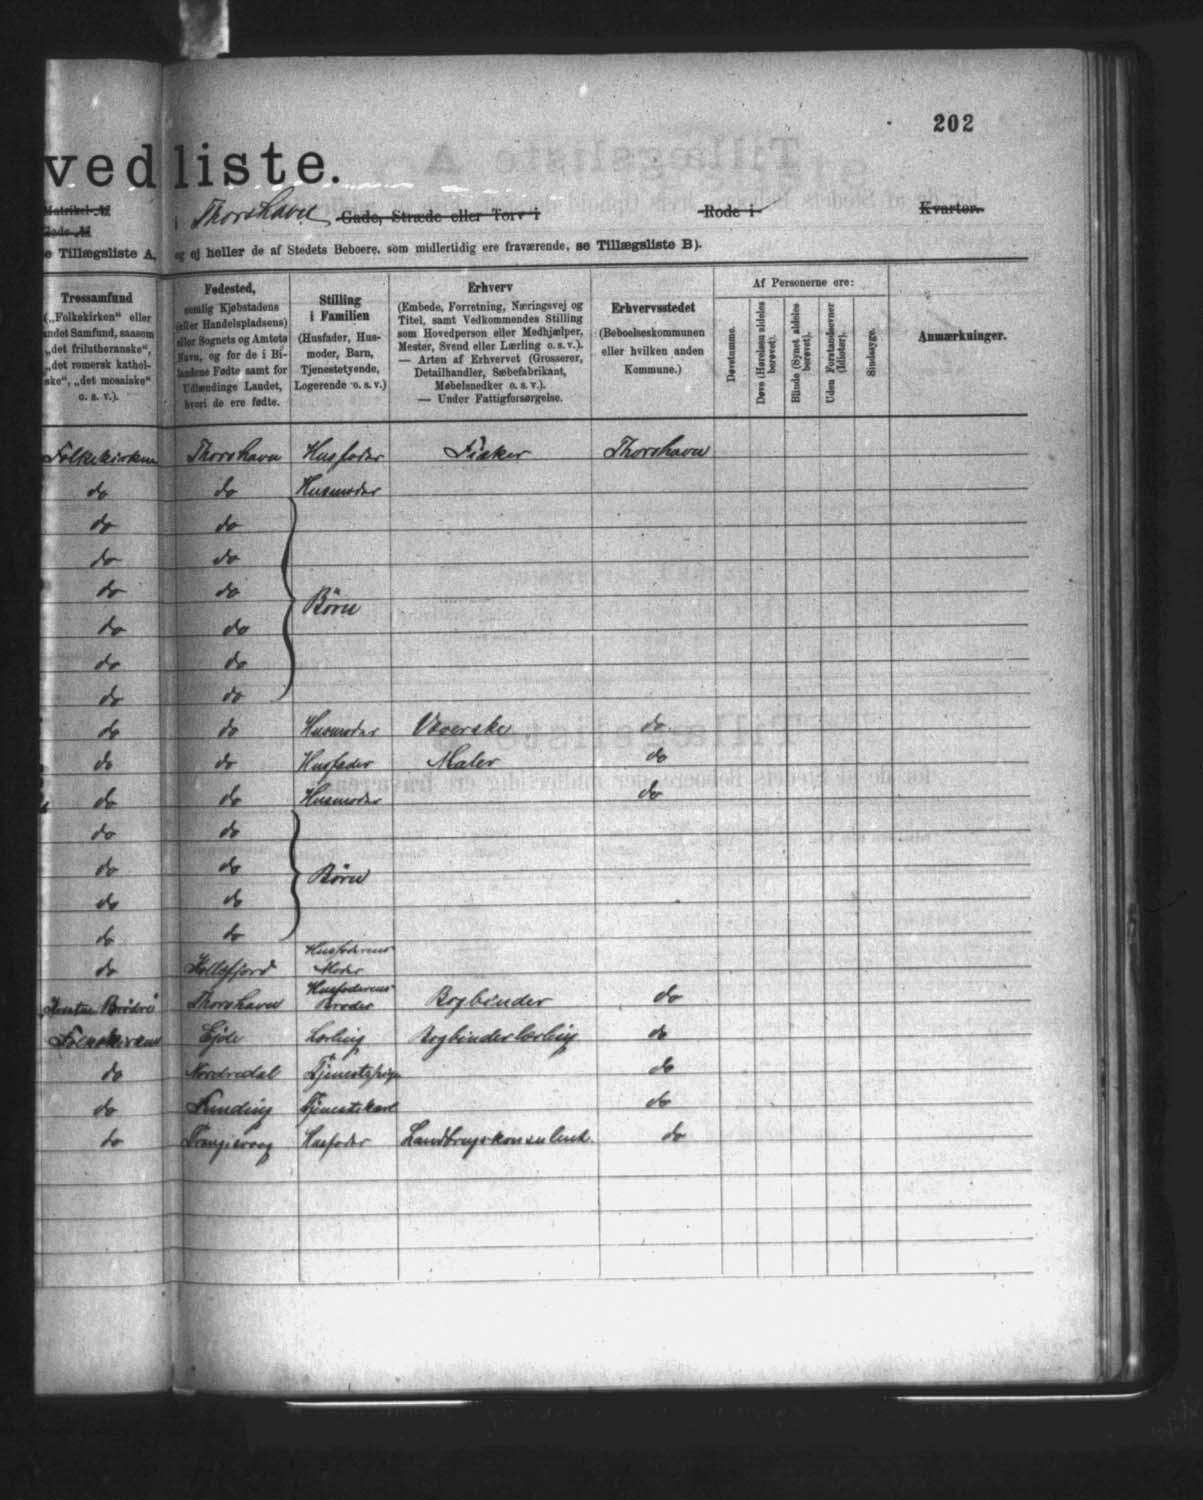 202
vedliste.
Matrikel-№
Gade-№
i Thorshavn Gade, Stræde eller Torv i Rode i Kvarter.
e Tillægsliste A, og ej heller de af Stedets Beboere, som midlertidig ere fraværende, se Tillægsliste B).
Trossamfund
(„Folkekirken“ eller
andet Samfund, saasom
„det frilutheranske“,
„det romersk kathol-
ske“, „det mosaiske“
o. s. v.).
Fødested,
nemlig Kjøbstadens
(eller Handelspladsens)
eller Sognets og Amtets
Navn, og for de i Bi-
landene Fødte samt for
Udlændinge Landet,
hvori de ere fødte.
Stilling
i Familien
(Husfader, Hus-
moder, Barn,
Tjenestetyende,
Logerende o. s. v.)
Erhverv
(Embede, Forretning, Næringsvej og
Titel, samt Vedkommendes Stilling
som Hovedperson eller Medhjælper,
Mester, Svend eller Lærling o. s. v.).
— Arten af Erhvervet (Grosserer,
Detailhandler, Sæbefabrikant,
Møbelsnedker o. s. v.).
— Under Fattigforsørgelse.
Erhvervsstedet
(Beboelseskommunen
eller hvilken anden
Kommune.)
Af Personerne ere:
Døvstumme.
Døve (Hørelsen aldeles
berøvet).
Blinde (Synet aldeles
berøvet).
Uden Forstandsevner
(Idioter).
Sindssyge.
Anmærkninger.
Folkekirken Thorshavn Husfader Fisker Thorshavn
do do Husmoder
do do
do do
do do
Børn
do do
do do
do do
do do Husmoder Væverske do
do do Husfader Maler do
do do Husmoder do
do do
do do Børn
do do
do do
do Kollefjord Husfaderens Moder
Brødre Thorshavn Husfaderens Broder Bogbinder do
Folkekirken Ejde Lærling Bogbinderlærling do
do Nordredal Tjenestepige do
do Funding Tjenestekarl do
do Trangisvaag Husfader Landbrugskonsulent. do